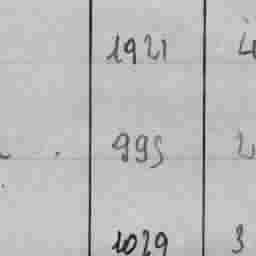 1921
995
1029 3